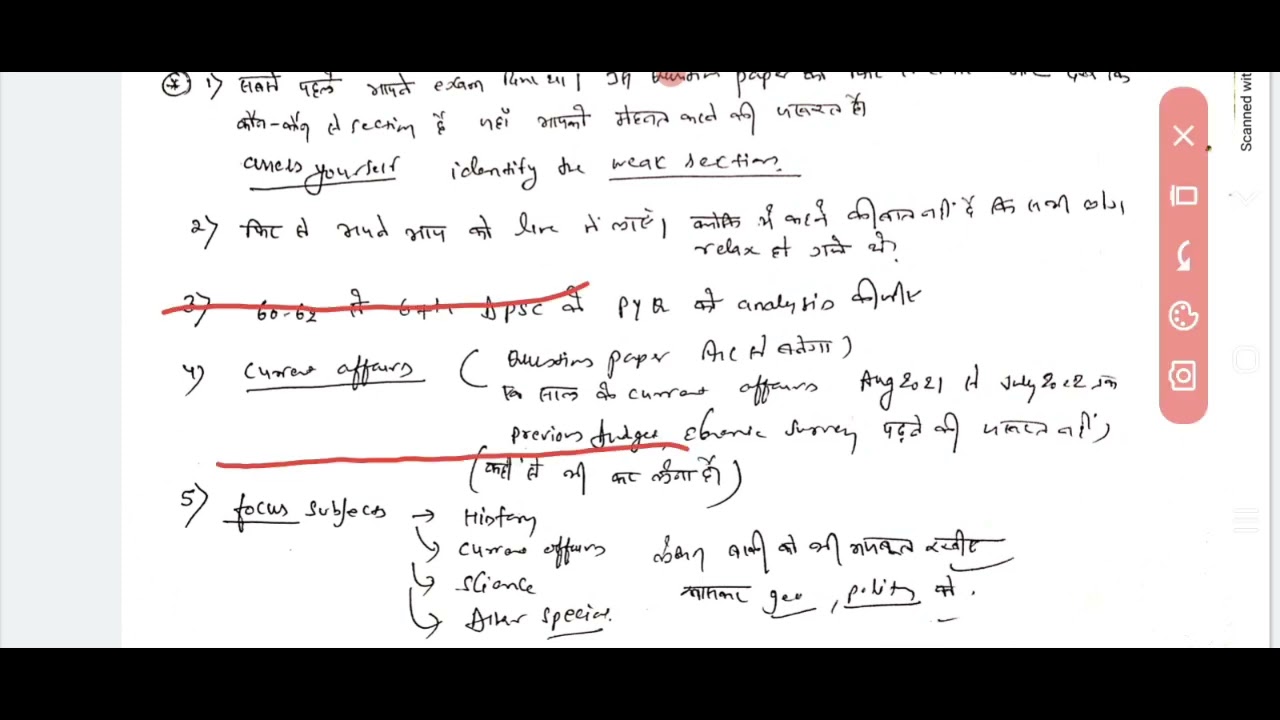 1) सबसे पहले आपने exam दिया था। उस question paper को फिर से और देखें कि
कौन-कौन से section हैं जहाँ आपको मेहनत करने की जरूरत है।
assess yourself identify the weak section.
2) फिर से अपने आप को line में लाएं। क्योंकि ये कहने की बात नहीं है कि सभी लोग
relax हो गये थे।
3) 60-62 से 67th BPSC के PYQ को analysis कीजिए
4) Current affairs ( Question paper से बनेगा )
साल के current affairs Aug 2021 से July 2022 तक
previous budget, economic survey पढ़ने की जरूरत नहीं
(कहीं से भी कर लेना है।)
5) focus subjects → History
→ Current affairs लेकिन बाकी को भी मजबूत रखीए
→ Science खासकर geo, polity को.
→ Bihar special.
Scanned with